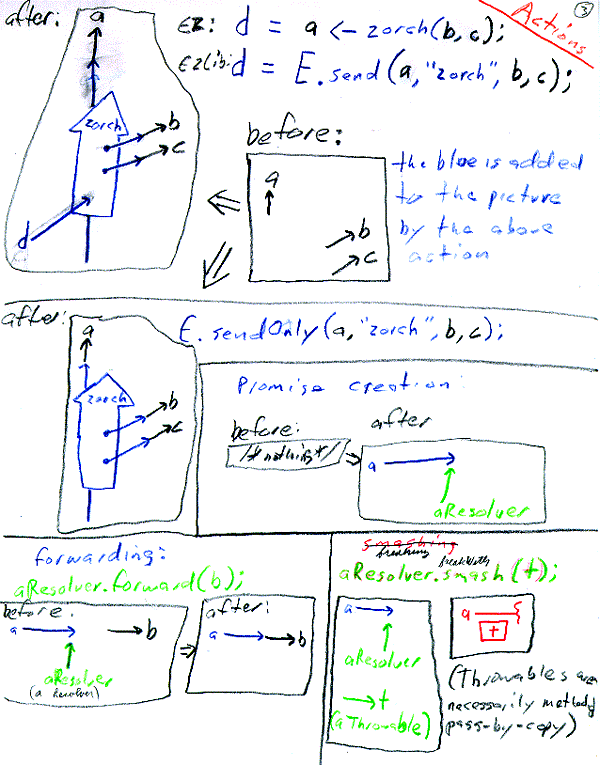 after:
a
zorch
b
c
d
E: d = a <- zorch(b, c);
Ezlib: d = E.send(a, "zorch", b, c);
3
Actions
before:
a
b
c
the blue is added
to the picture
by the above
action
after:
a
zorch
b
c
E.sendOnly(a, "zorch", b, c);
Promise creation:
before:
/*nothing*/
after
a
aResolver
forwarding:
aResolver.forward(b);
before:
a
b
aResolver
(a Resolver)
after:
a
b
smashing
breaking
breakWith
aResolver.smash(t);
a
aResolver
t
(a Throwable)
a
t
(Throwables are
necessarily
pass-by-copy)